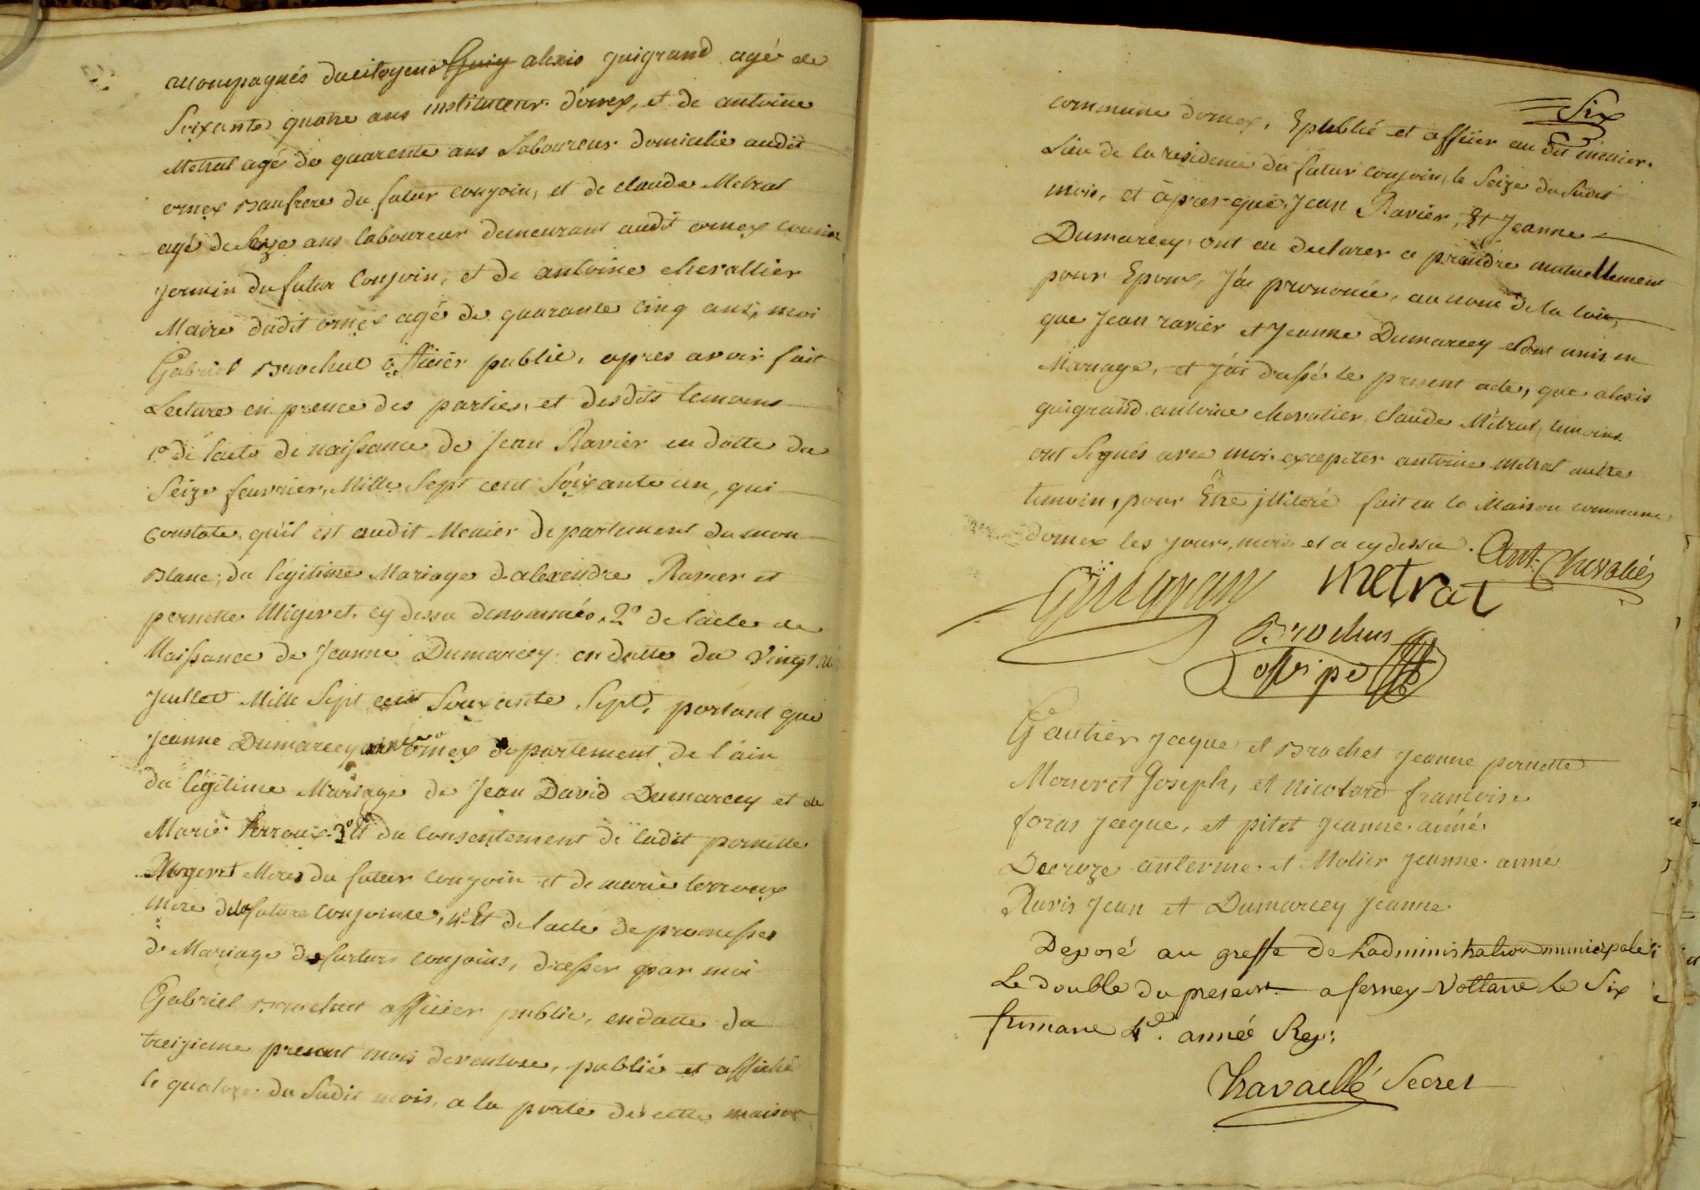 accompagnés du citoyens Guig alexis guigrand agé de
Soixantes quatre ans instituteur d'ornex, et de antoine
Metral agé de quarente ans Laboureur domicilié audit
ornex Beaufrere du futur conjoin, et de claude Metral
agé de seize ans laboureur demeurant audit ornex cousin
germin du futur Conjoin, et de antoine chevallier
Maire dudit ornex agé de quarante cinq ans, moi
Gabriel Brochut officier public, apres avoir fait
Lecture en prence des parties, et desdits temoins
1º de l'acte de naissance de Jean Ravier en datte du
Seize feuvrier, Mille Sept cent Soixante un, qui
Constate, qu'il est audit Menier departement du mon
Blanc, du légitime Mariage d'alexendre Ravier et
pernette Migeret, cy dessu denommés, 2º de l'acte de
Naissance de Jeanne Dumarcey en datte du vingt
Juillet Mille Sept cent Souxante Sept, portant que
Jeanne Dumarcey ornex departement de l'ain
du légitime Mariage de Jean David Dumarcey et de
Marie terroux 3º du consentement de ladit pernette
Migeret Mere du futur conjoin et de marie terroux
Mere dela future conjointe, 4º Et de l'acte de promesses
de Mariage des futurs conjoins, dresser par moi
Gabriel Brochut officier public, en datte du
treizieme present mois de ventose, publié et affiché
le quatorze du Sudit mois, a la porte de cette maison
Six
commune d'ornex, Epublié et affiier au dit menier
Lieu de la residence du futur conjoin, le Seize du Sudit
mois, et àpres que Jean Ravier, Et Jeanne
Dumarcey ont eu declarer ce prandre mutuellement
pour Epoux, J'ai prononcé, au nom de la loix,
que Jean ravier et Jeanne Dumarcey Sont unis en
Mariage, et J'ai drésé le present acte, que alexis
guigrand antoine chevalier, claude Métral, temoins
ont Signés avec moi excepter antoine metral autre
temoin, pour Être jlliteré fait en la Maison commune
dornex les jour, mois et a cy dessu. Ant. Chevaliés
Guigran metral
Brochut
off. p
Gautier jacque et Brochet jeanne pernette
Morseret Joseph, et nicolard francoise
foras jacque, et pitet jeanne aimé
Decroze anterme et Molier jeanne anné
Ravis jean et Dumarcey jeanne
Deposé au greffe de l'administration municipale
Le double du present a ferney-voltaire le Six
frimaire 4e. année Rep.
Travaillé Secret